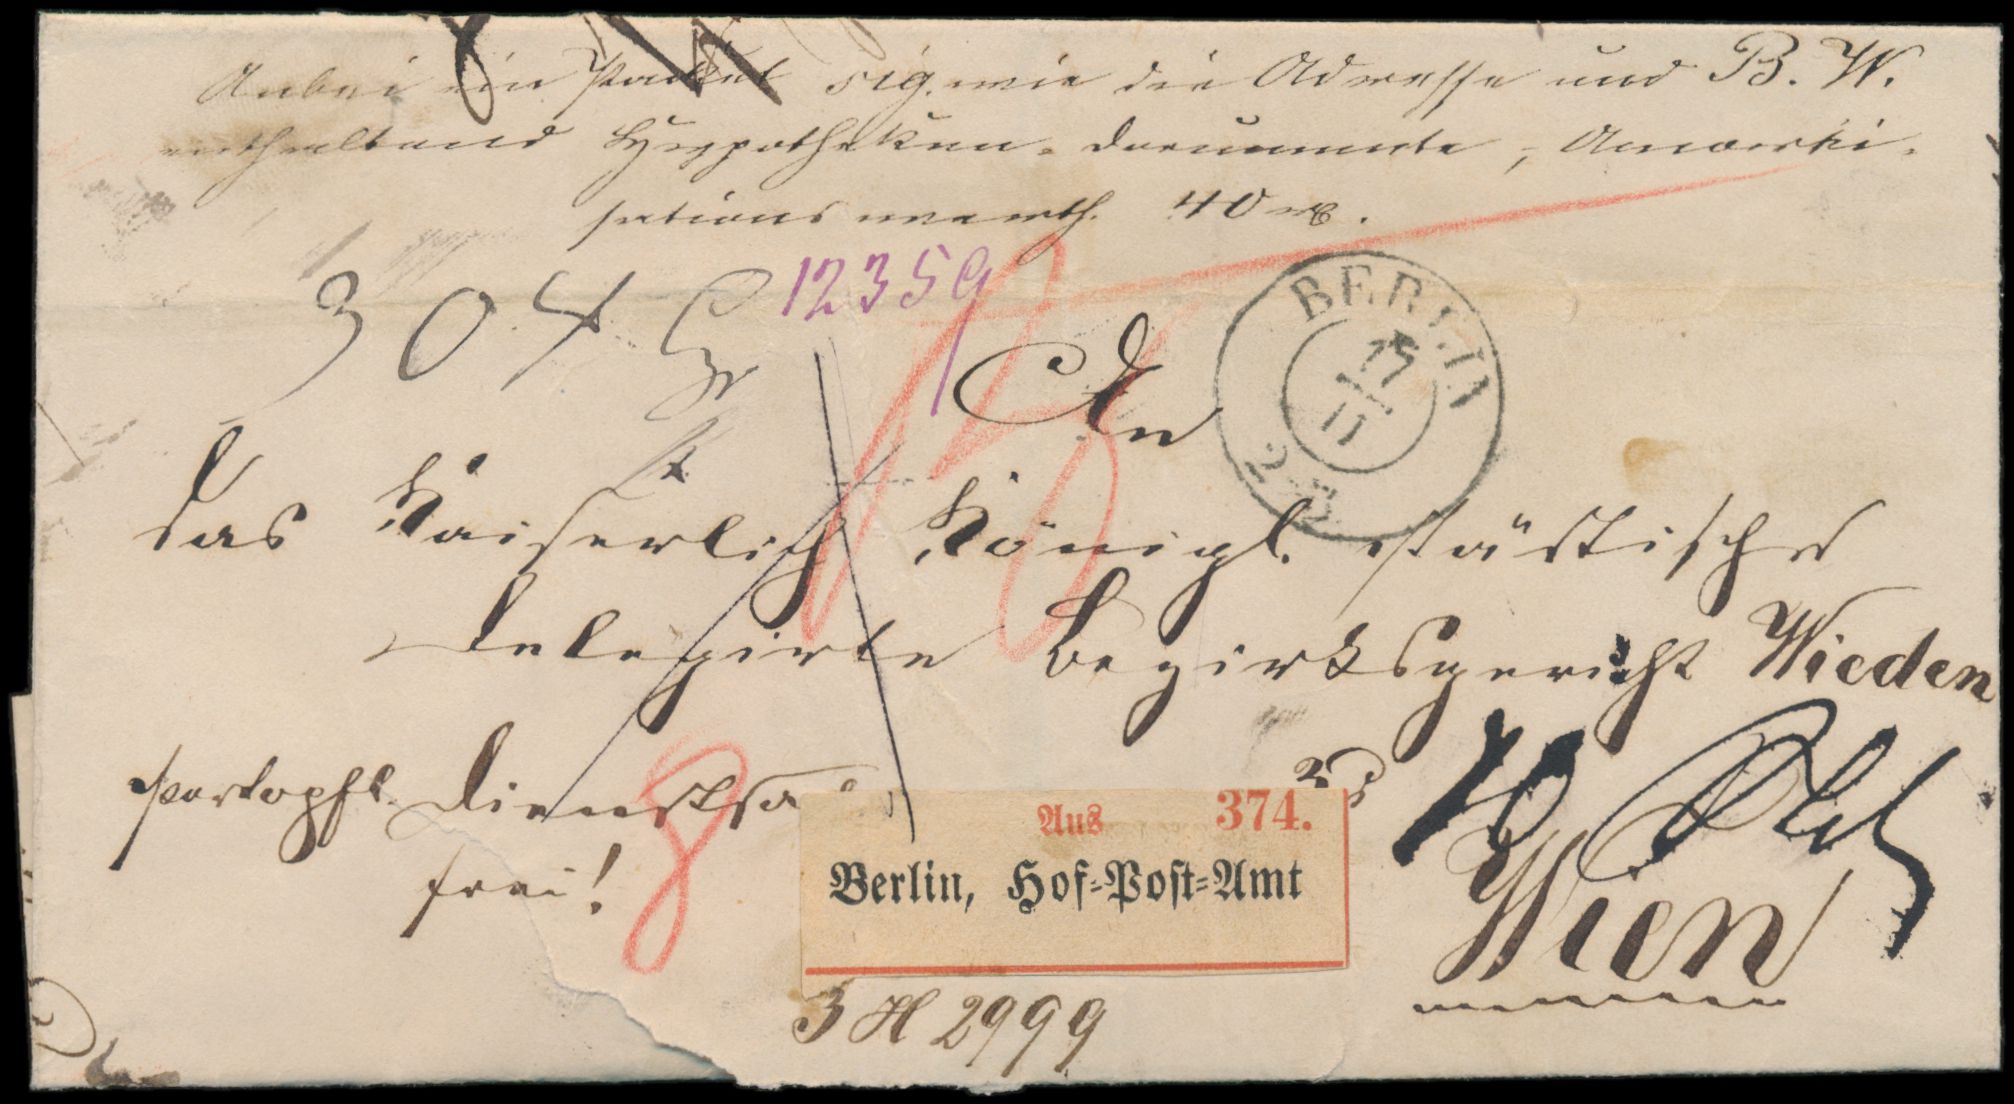 Anbei ein Packet sig. wie die Adresse und B. W.
enthaltend Hypotheken-Documente, Amorti-
sations werth. 40 rℓ.
304
12359
An
BERLIN
17
11
2-3
das Kaiserlich Königl. städtische
delegirte Bezirksgericht Wieden
portopfl. Dienstsa
frei!
8
Aus 374.
Berlin, Hof-Post-Amt
Wien
3 H 2999